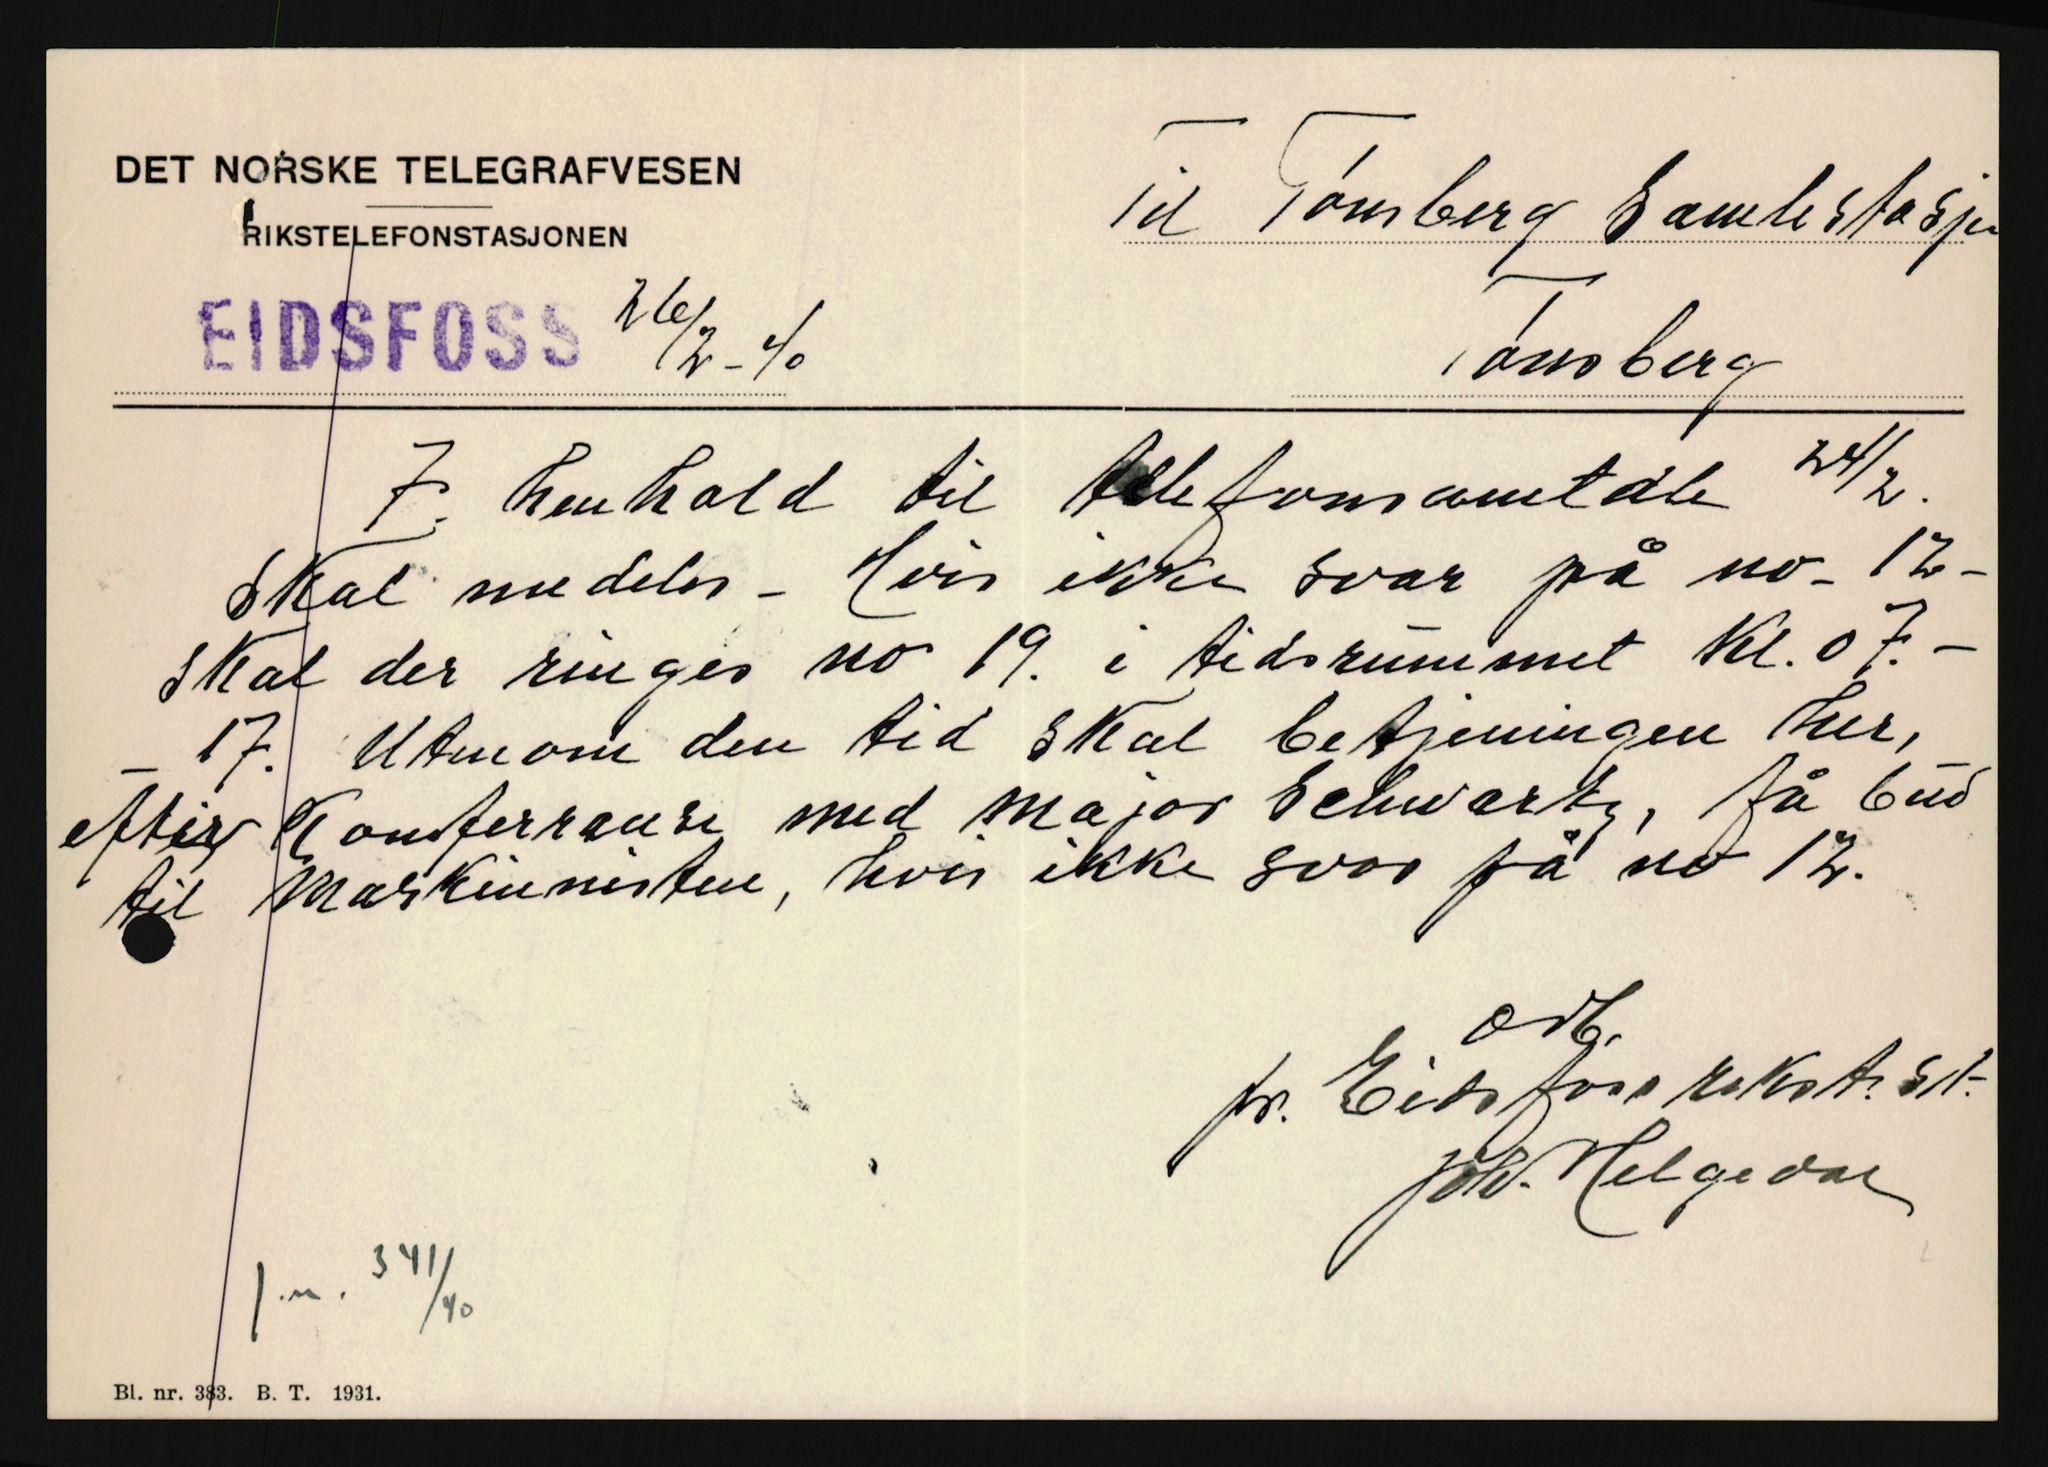 DET NORSKE TELEGRAFVESEN
RIKSTELEFONSTASJONEN
EIDSFOSS 26/2-40
Til Tønsberg Samlestasjon
Tønsberg
I henhold til telefonsamtale 24/2.
skal meddeles - Hvis ikke svar på no - 12 -
skal der ringes no 19. i tidsrummet Kl. 07. -
- 17. Utenom den tid skal betjeningen her,
efter Konferranse med major Schwartz, få bud
til Maskinnisten, hvis ikke svar på no 12.
ærb.
pr. Eidsfoss rikst. st.
Joh. Helgevar
J.n. 341/40
Bl. nr. 383. B. T. 1931.